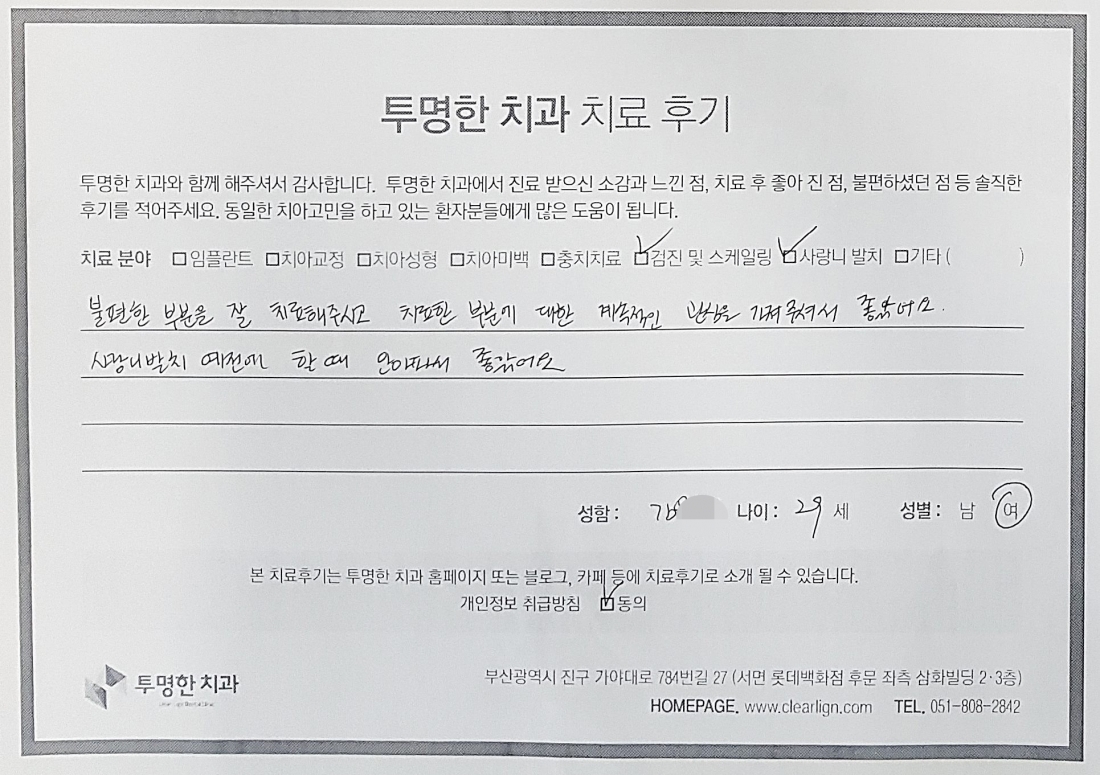 투명한 치과 치료 후기
투명한 치과와 함께 해주셔서 감사합니다. 투명한 치과에서 진료 받으신 소감과 느낀 점, 치료 후 좋아 진 점, 불편하셨던 점 등 솔직한
후기를 적어주세요. 동일한 치아고민을 하고 있는 환자분들에게 많은 도움이 됩니다.
치료 분야 □임플란트 □치아교정 □치아성형 □치아미백 □충치치료 ☑검진 및 스케일링 ☑사랑니 발치 □기타 ( )
불편한 부분을 잘 치료해주시고 치료한 부분에 대한 계속적인 관심을 가져주셔서 좋았어요.
사랑니발치 예전에 할 때 안아파서 좋았어요
성함 : 김 나이 : 29 세 성별 : 남 여
본 치료후기는 투명한 치과 홈페이지 또는 블로그, 카페 등에 치료후기로 소개 될 수 있습니다.
개인정보 취급방침 ☑동의
투명한 치과
부산광역시 진구 가야대로 784번길 27 (서면 롯데백화점 후문 좌측 삼화빌딩 2·3층)
HOMEPAGE. www.clearlign.com TEL. 051-808-2842